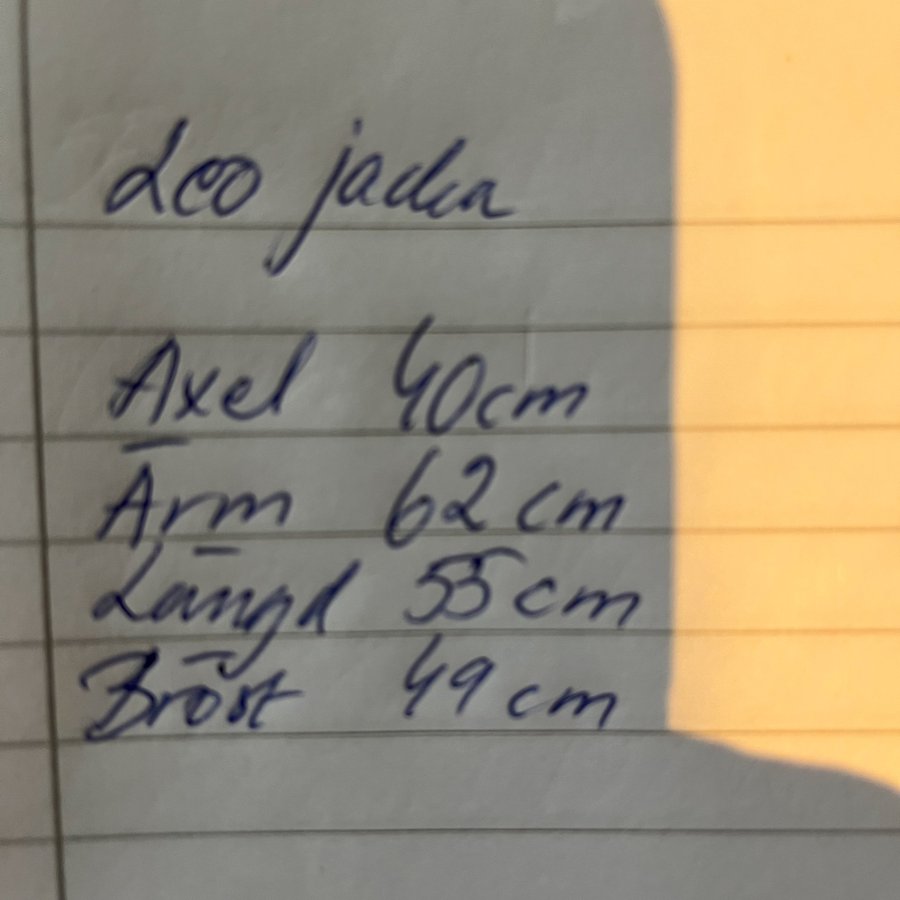 Leo jacka
Axel 40cm
Ärm 62 cm
Längd 55 cm
Bröst 49 cm